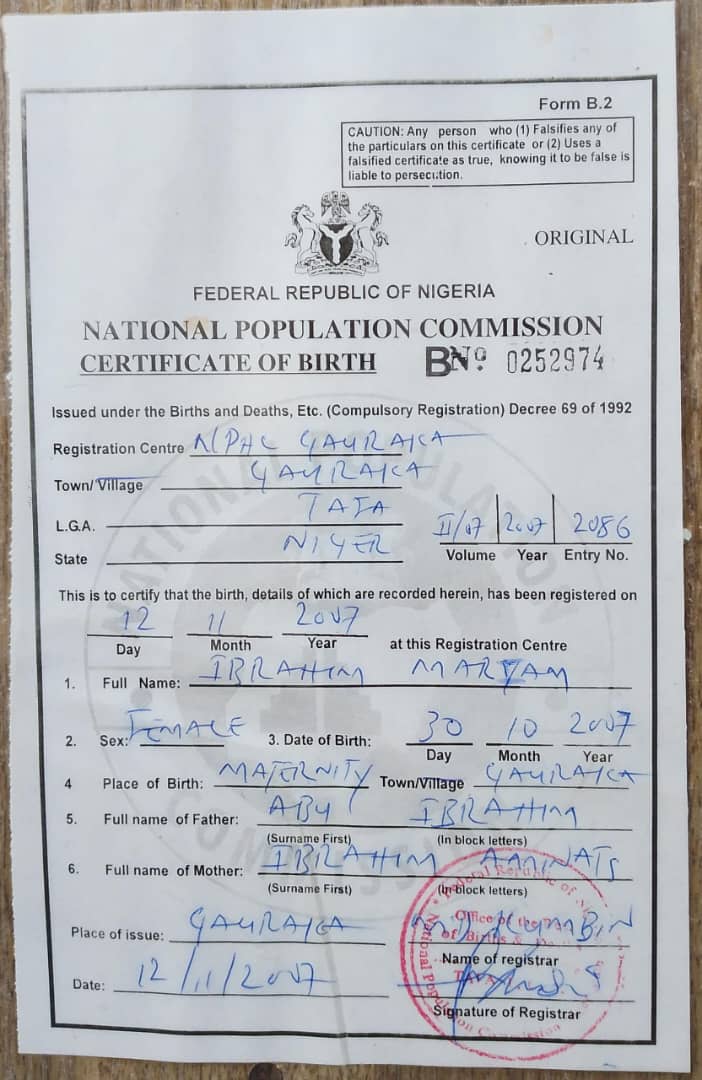 Form B.2
CAUTION: Any person who (1) Falsifies any of
the particulars on this certificate or (2) Uses a
falsified certificate as true, knowing it to be false is
liable to persecution.
ORIGINAL
FEDERAL REPUBLIC OF NIGERIA
NATIONAL POPULATION COMMISSION
CERTIFICATE OF BIRTH BNº. 0252974
Issued under the Births and Deaths, Etc. (Compulsory Registration) Decree 69 of 1992
Registration Centre N/PHC GAURAKA
Town/Village GAURAKA
L.G.A. TAFA
State NIGER
II/07 2007 2086
Volume Year Entry No.
This is to certify that the birth, details of which are recorded herein, has been registered on
12 11 2007
Day Month Year at this Registration Centre
1. Full Name: IBRAHIM MARYAM
2. Sex: FEMALE 3. Date of Birth: 30 10 2007
Day Month Year
4 Place of Birth: MATERNITY Town/Village GAURAKA
5. Full name of Father: ABU IBRAHIM
(Surname First) (In block letters)
6. Full name of Mother: IBRAHIM
(Surname First) (In block letters)
Place of issue: GAURAKA
Name of registrar
Date: 12/11/2007
Signature of Registrar
Federal Republic of
Office of the
of Births &
National Population Commission